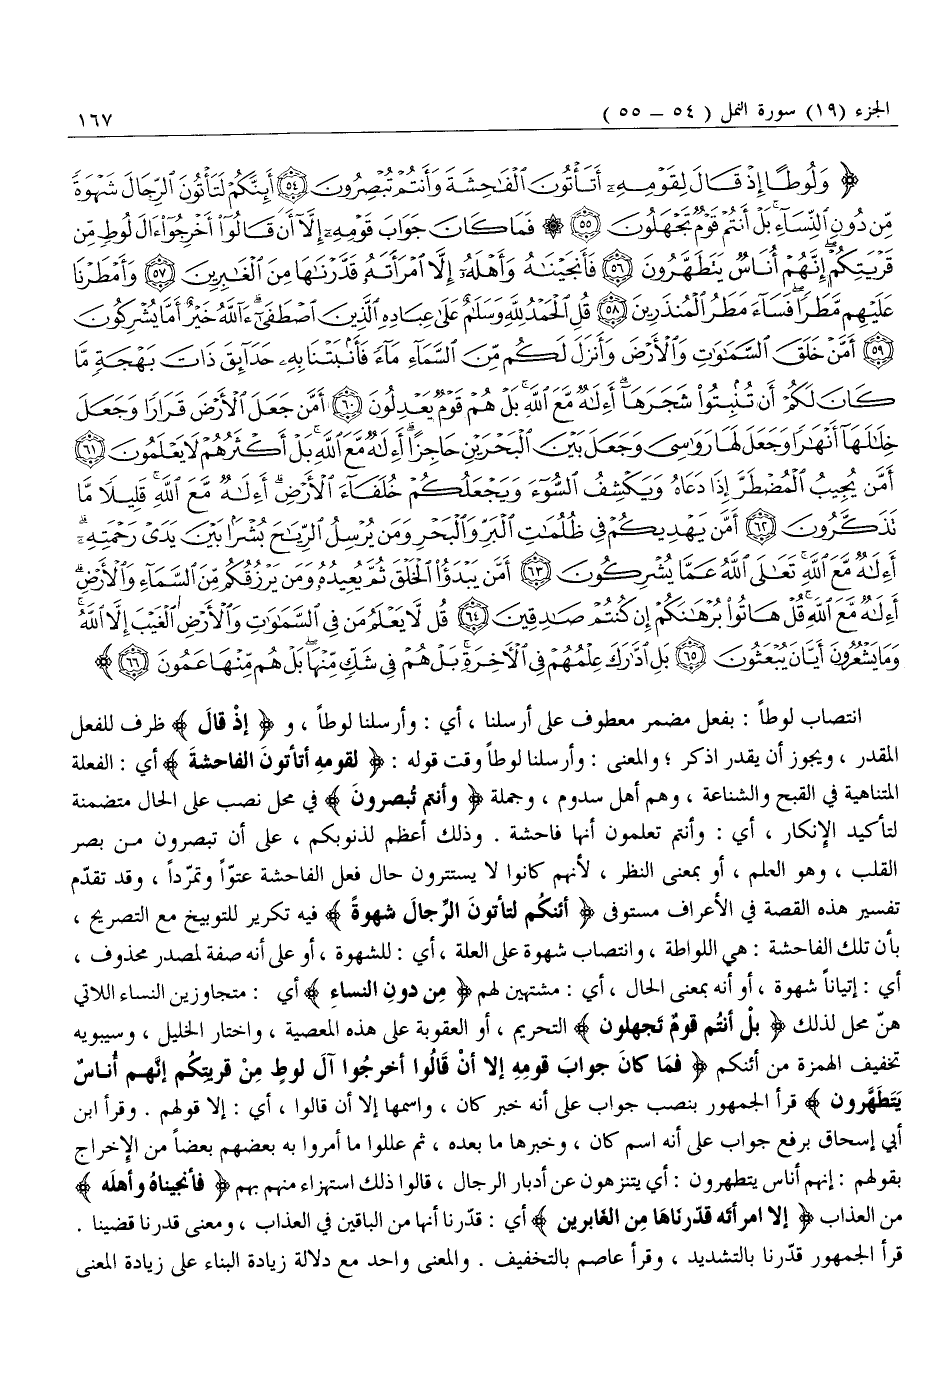 الجزء (١٩) سورة النمل ( ٥٤ – ٥٥ ) ١٦٧
﴿ وَلُوطًا إِذْ قَالَ لِقَوْمِهِۦٓ أَتَأْتُونَ ٱلْفَٰحِشَةَ وَأَنتُمْ تُبْصِرُونَ ﴿٥٤﴾ أَئِنَّكُمْ لَتَأْتُونَ ٱلرِّجَالَ شَهْوَةً
مِّن دُونِ ٱلنِّسَآءِ ۚ بَلْ أَنتُمْ قَوْمٌ تَجْهَلُونَ ﴿٥٥﴾ ۞ فَمَا كَانَ جَوَابَ قَوْمِهِۦٓ إِلَّآ أَن قَالُوٓا۟ أَخْرِجُوٓا۟ ءَالَ لُوطٍ مِّن
قَرْيَتِكُمْ ۖ إِنَّهُمْ أُنَاسٌ يَتَطَهَّرُونَ ﴿٥٦﴾ فَأَنجَيْنَٰهُ وَأَهْلَهُۥٓ إِلَّا ٱمْرَأَتَهُۥ قَدَّرْنَٰهَا مِنَ ٱلْغَٰبِرِينَ ﴿٥٧﴾ وَأَمْطَرْنَا
عَلَيْهِم مَّطَرًا ۖ فَسَآءَ مَطَرُ ٱلْمُنذَرِينَ ﴿٥٨﴾ قُلِ ٱلْحَمْدُ لِلَّهِ وَسَلَٰمٌ عَلَىٰ عِبَادِهِ ٱلَّذِينَ ٱصْطَفَىٰٓ ۗ ءَآللَّهُ خَيْرٌ أَمَّا يُشْرِكُونَ
﴿٥٩﴾ أَمَّنْ خَلَقَ ٱلسَّمَٰوَٰتِ وَٱلْأَرْضَ وَأَنزَلَ لَكُم مِّنَ ٱلسَّمَآءِ مَآءً فَأَنۢبَتْنَا بِهِۦ حَدَآئِقَ ذَاتَ بَهْجَةٍ مَّا
كَانَ لَكُمْ أَن تُنۢبِتُوا۟ شَجَرَهَآ ۗ أَءِلَٰهٌ مَّعَ ٱللَّهِ ۚ بَلْ هُمْ قَوْمٌ يَعْدِلُونَ ﴿٦٠﴾ أَمَّن جَعَلَ ٱلْأَرْضَ قَرَارًا وَجَعَلَ
خِلَٰلَهَآ أَنْهَٰرًا وَجَعَلَ لَهَا رَوَٰسِىَ وَجَعَلَ بَيْنَ ٱلْبَحْرَيْنِ حَاجِزًا ۗ أَءِلَٰهٌ مَّعَ ٱللَّهِ ۚ بَلْ أَكْثَرُهُمْ لَا يَعْلَمُونَ ﴿٦١﴾
أَمَّن يُجِيبُ ٱلْمُضْطَرَّ إِذَا دَعَاهُ وَيَكْشِفُ ٱلسُّوٓءَ وَيَجْعَلُكُمْ خُلَفَآءَ ٱلْأَرْضِ ۗ أَءِلَٰهٌ مَّعَ ٱللَّهِ ۚ قَلِيلًا مَّا
تَذَكَّرُونَ ﴿٦٢﴾ أَمَّن يَهْدِيكُمْ فِى ظُلُمَٰتِ ٱلْبَرِّ وَٱلْبَحْرِ وَمَن يُرْسِلُ ٱلرِّيَٰحَ بُشْرًۢا بَيْنَ يَدَىْ رَحْمَتِهِۦٓ ۗ
أَءِلَٰهٌ مَّعَ ٱللَّهِ ۚ تَعَٰلَى ٱللَّهُ عَمَّا يُشْرِكُونَ ﴿٦٣﴾ أَمَّن يَبْدَؤُا۟ ٱلْخَلْقَ ثُمَّ يُعِيدُهُۥ وَمَن يَرْزُقُكُم مِّنَ ٱلسَّمَآءِ وَٱلْأَرْضِ ۗ
أَءِلَٰهٌ مَّعَ ٱللَّهِ ۚ قُلْ هَاتُوا۟ بُرْهَٰنَكُمْ إِن كُنتُمْ صَٰدِقِينَ ﴿٦٤﴾ قُل لَّا يَعْلَمُ مَن فِى ٱلسَّمَٰوَٰتِ وَٱلْأَرْضِ ٱلْغَيْبَ إِلَّا ٱللَّهُ ۚ
وَمَا يَشْعُرُونَ أَيَّانَ يُبْعَثُونَ ﴿٦٥﴾ بَلِ ٱدَّٰرَكَ عِلْمُهُمْ فِى ٱلْءَاخِرَةِ ۚ بَلْ هُمْ فِى شَكٍّ مِّنْهَا ۖ بَلْ هُم مِّنْهَا عَمُونَ ﴿٦٦﴾ ﴾
انتصاب لوطاً : بفعل مضمر معطوف على أرسلنا ، أي : وأرسلنا لوطاً ، و ﴿ إذْ قالَ ﴾ ظرف للفعل
المقدر ، ويجوز أن يقدر اذكر ؛ والمعنى : وأرسلنا لوطاً وقت قوله : ﴿ لقومهِ أتأتونَ الفاحشةَ ﴾ أي : الفعلة
المتناهية في القبح والشناعة ، وهم أهل سدوم ، وجملة ﴿ وأنتم تُبصرونَ ﴾ في محل نصب على الحال متضمنة
لتأكيد الإنكار ، أي : وأنتم تعلمون أنها فاحشة . وذلك أعظم لذنوبكم ، على أن تبصرون من بصر
القلب ، وهو العلم ، أو بمعنى النظر ، لأنهم كانوا لا يستترون حال فعل الفاحشة عتوّاً وتمرّداً ، وقد تقدّم
تفسير هذه القصة في الأعراف مستوفى ﴿ أئنكُم لتأتونَ الرِّجالَ شهوةً ﴾ فيه تكرير للتوبيخ مع التصريح ،
بأن تلك الفاحشة : هي اللواطة ، وانتصاب شهوة على العلة ، أي : للشهوة ، أو على أنه صفة لمصدر محذوف ،
أي : إتياناً شهوة ، أو أنه بمعنى الحال ، أي : مشتهين لهم ﴿ مِن دونِ النساءِ ﴾ أي : متجاوزين النساء اللاتي
هنّ محل لذلك ﴿ بلْ أنتُم قومٌ تَجهلون ﴾ التحريم ، أو العقوبة على هذه المعصية ، واختار الخليل ، وسيبويه
تخفيف الهمزة من أئنكم ﴿ فمَا كانَ جوابَ قومِهِ إلا أنْ قَالُوا أخرجُوا آلَ لوطٍ مِنْ قريتِكُم إنَّهم أُناسٌ
يَتَطَهَّرون ﴾ قرأ الجمهور بنصب جواب على أنه خبر كان ، واسمها إلا أن قالوا ، أي : إلا قولهم . وقرأ ابن
أبي إسحاق برفع جواب على أنه اسم كان ، وخبرها ما بعده ، ثم عللوا ما أمروا به بعضهم بعضاً من الإخراج
بقولهم : إنهم أناس يتطهرون : أي يتنزهون عن أدبار الرجال ، قالوا ذلك استهزاء منهم بهم ﴿ فأنجيناهُ وأهلَه ﴾
من العذاب ﴿ إلا امرأتَه قدّرنَاهَا مِن الغَابرين ﴾ أي : قدّرنا أنها من الباقين في العذاب ، ومعنى قدرنا قضينا .
قرأ الجمهور قدّرنا بالتشديد ، وقرأ عاصم بالتخفيف . والمعنى واحد مع دلالة زيادة البناء على زيادة المعنى